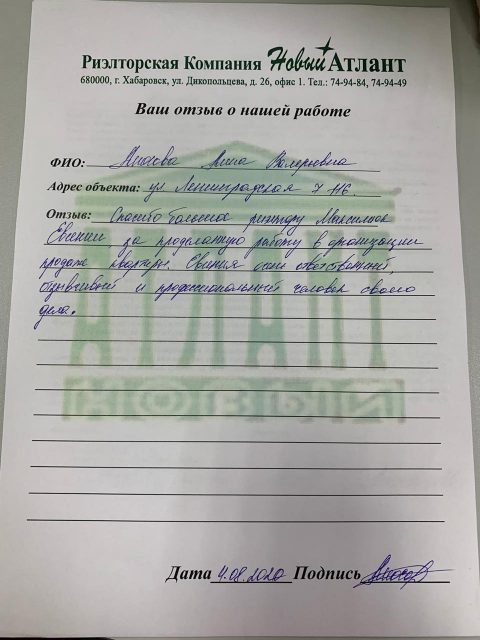 Риэлторская Компания Новый Атлант
680000, г. Хабаровск, ул. Дикопольцева, д. 26, офис 1. Тел.: 74-94-84, 74-94-49
Ваш отзыв о нашей работе
ФИО: Валерьевна
Адрес объекта: ул Ленинградская 7
Отзыв: Спасибо большое риэлтору
Евгении за проделанную работу в организации
продаже квартиры. Евгения очень ответственный,
отзывчивый и профессиональный человек своего
дела.
АТЛАНТ
НОВЫЙ
Дата 4.08.2020 Подпись